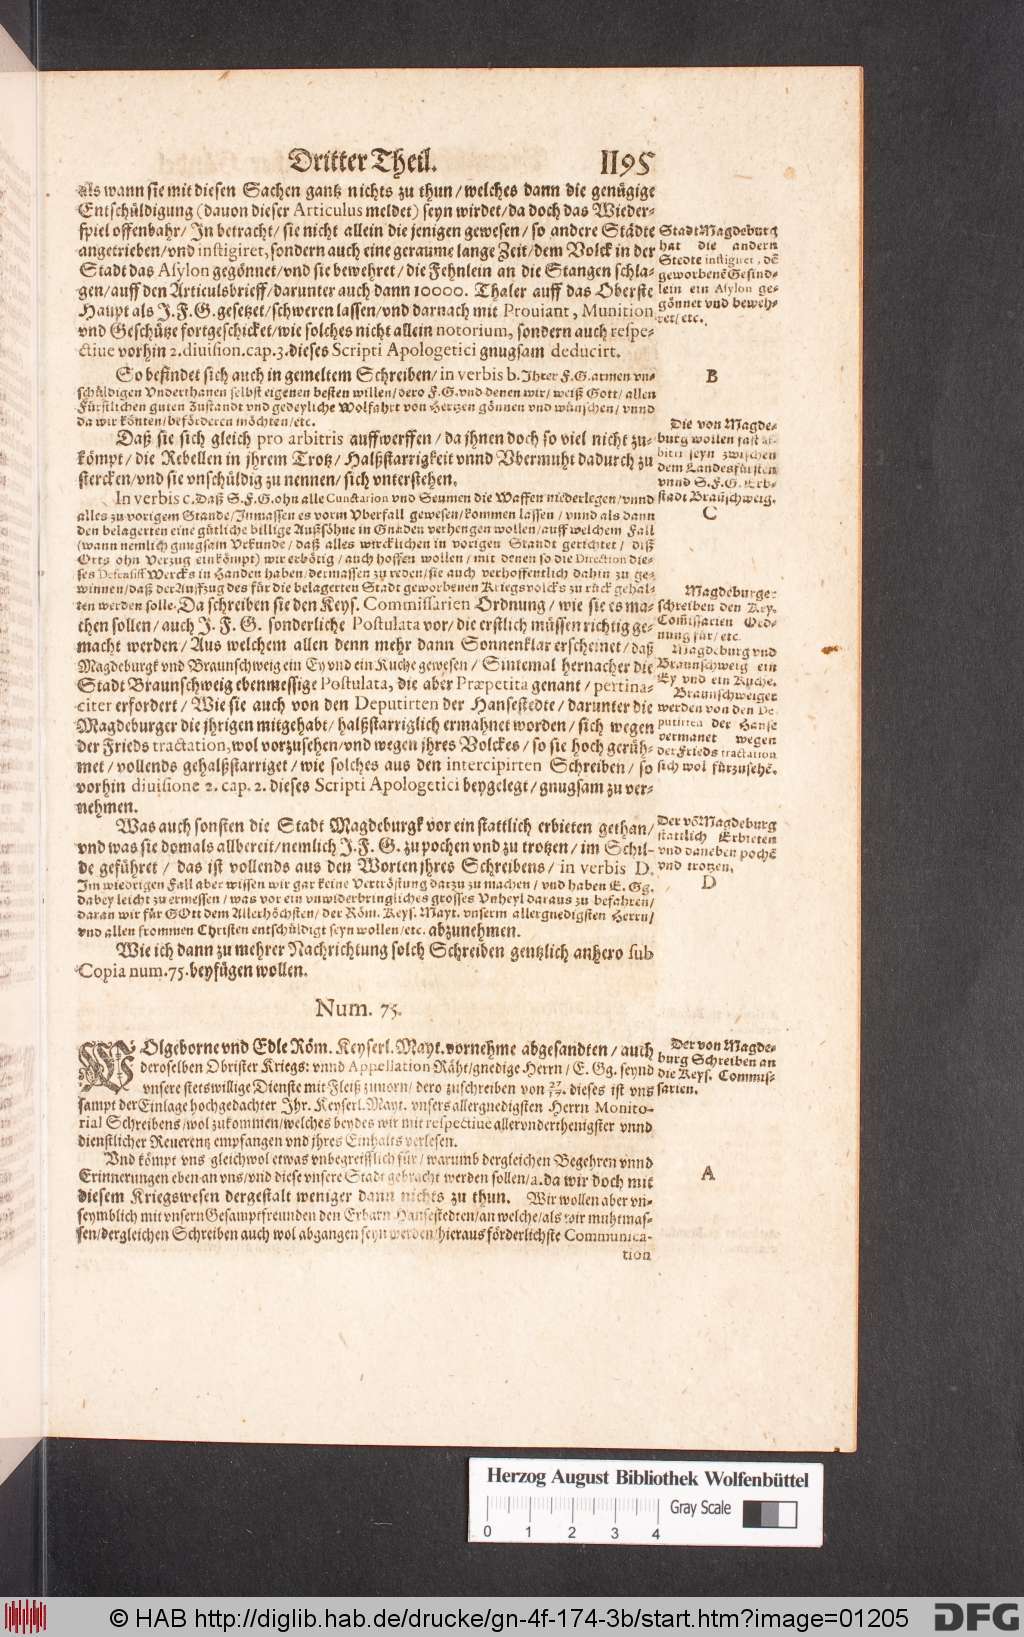 Dritter Theil. 1195
Als wann sie mit diesen Sachen gantz nichts zu thun / welches dann die genügige
Entschüldigung (dauon dieser Articulus meldet) seyn wirdet / da doch das Wieder-
spiel offenbahr / In betracht / sie nicht allein die jenigen gewesen / so andere Städte
angetrieben / vnd instigiret, sondern auch eine geraume lange Zeit / dem Volck in der
Stadt das Asylon gegönnet / vnd sie bewehret / die Fehnlein an die Stangen schla-
gen / auff den Articulsbrieff / darunter auch dann 10000. Thaler auff das Oberste
Haupt als J. F. G. gesetzet / schweren lassen / vnd darnach mit Prouiant, Munition
vnd Geschütze fortgeschicket / wie solches nicht allein notorium, sondern auch respe-
ctiue vorhin 2. diuision. cap. 3. dieses Scripti Apologetici gnugsam deducirt.
Stadt Magdeburg
hat die andern
Stedte instiguet, dē
geworbenē Gesind-
lein ein Asylon ge-
gönnet vnd beweh-
ret / etc.
So befindet sich auch in gemeltem Schreiben / in verbis b. Ihrer F. G. armen vn-
schüldigen Vnderthanen selbst eigenen besten willen / dero F. G. vnd denen wir / weiß Gott / allen
Fürstlichen guten Zustandt vnd gedeyliche Wolfahrt von Hertzen gönnen vnd wünschen / vnnd
da wir könten / beförderen möchten / etc.
B
Daß sie sich gleich pro arbitris auffwerffen / da jhnen doch so viel nicht zu-
kömpt / die Rebellen in jhrem Trotz / Halßstarrigkeit vnnd Vbermuht dadurch zu
stercken / vnd sie vnschüldig zu nennen / sich vnterstehen.
Die von Magde-
burg wollen fast ar-
bitri seyn zwischen
dem Landesfürsten
vnnd S. F. G. Erb-
stadt Braūschweig.
C
In verbis c. Daß S. F. G. ohn alle Cunctation vnd Seumen die Waffen niederlegen / vnnd
alles zu vorigem Stande / Inmassen es vorm Vberfall gewesen / kommen lassen / vnnd als dann
den belagerten eine gütliche billige Außsöhne in Gnaden verhengen wollen / auff welchem Fall
(wann nemlich gnugsam Vrkunde / daß alles wircklichen in vorigen Standt gerichtet / diß
Orts ohn Verzug einkömpt) wir erbötig / auch hoffen wollen / mit denen so die Direction die-
ses Defensiff Wercks in Handen haben / dermassen zu reden / sie auch verhoffentlich dahin zu ge-
winnen / daß der Auffzug des für die belagerten Stadt geworbenen Kriegsvolcks zu rück gehal-
ten werden solle. Da schreiben sie den Keys. Commissarien Ordnung / wie sie es ma-
chen sollen / auch J. F. G. sonderliche Postulata vor / die erstlich müssen richtig ge-
macht werden / Aus welchem allen denn mehr dann Sonnenklar erscheinet / daß
Magdeburgk vnd Braunschweig ein Ey vnd ein Kuche gewesen / Sintemal hernacher die
Stadt Braunschweig ebenmessige Postulata, die aber Præpetita genant / pertina-
citer erfordert / Wie sie auch von den Deputirten der Hansestedte / darunter die
Magdeburger die jhrigen mitgehabt / halßstarriglich ermahnet worden / sich wegen
der Frieds tractation, wol vorzusehen / vnd wegen jhres Volckes / so sie hoch gerüh-
met / vollends gehalßstarriget / wie solches aus den intercipirten Schreiben / so
vorhin diuisione 2. cap. 2. dieses Scripti Apologetici beygelegt / gnugsam zu ver-
nehmen.
Magdeburger
schreiben den Key.
Com̄issarien Ord-
nung für / etc.
Magdeburg vnd
Braunschweig ein
Ey vnd ein Kuche.
Braunschweiger
werden von den De-
putirten der Hanse
vermanet wegen
der Frieds tractation
sich wol fürzusehē.
Was auch sonsten die Stadt Magdeburgk vor ein stattlich erbieten gethan /
vnd was sie domals allbereit / nemlich J. F. G. zu pochen vnd zu trotzen / im Schil-
de geführet / das ist vollends aus den Worten jhres Schreibens / in verbis D.
Im wiedrigen Fall aber wissen wir gar keine Vertröstung darzu zu machen / vnd haben E. Gg.
dabey leicht zu ermessen / was vor ein vnwiderbringliches grosses Vnheyl daraus zu befahren /
daran wir für GOtt dem Allerhöchsten / der Röm. Keys. Mayt. vnserm allergnedigsten Herrn /
vnd allen frommen Christen entschüldigt seyn wollen / etc. abzunehmen.
Der vō Magdeburg
stattlich Erbieten
vnd daneben pochē
vnd trotzen.
D
Wie ich dann zu mehrer Nachrichtung solch Schreiben gentzlich anhero sub
Copia num. 75. beyfügen wollen.
Num. 75.
WOlgeborne vnd Edle Röm. Keyserl. Mayt. vornehme abgesandten / auch
deroselben Obrister Kriegs: vnnd Appellation Räht / gnedige Herrn / E. Gg. seynd
vnsere stetswillige Dienste mit Fleiß zuuorn / dero zuschreiben von dieses ist vns
sampt der Einlage hochgedachter Ihr. Keyserl. Mayt. vnsers allergnedigsten Herrn Monito-
rial Schreibens / wol zukommen / welches beydes wir mit respectiue allervnderthenigster vnnd
dienstlicher Reuerentz empfangen vnd jhres Einhalts verlesen.
Der von Magde-
burg Schreiben an
die Keys. Commis-
sarien.
Vnd kömpt vns gleichwol etwas vnbegreifflich für / warumb dergleichen Begehren vnnd
Erinnerungen eben an vns / vnd diese vnsere Stadt gebracht werden sollen / a. da wir doch mit
diesem Kriegswesen dergestalt weniger dann nichts zu thun. Wir wollen aber vn-
seymblich mit vnsern Gesamptfreunden den Erbarn Hansestedten / an welche / als wir muhtmas-
sen / dergleichen Schreiben auch wol abgangen seyn werden / hieraus förderlichste Communica-
tion
A
Herzog August Bibliothek Wolfenbüttel
Gray Scale
0 1 2 3 4
© HAB http://diglib.hab.de/drucke/gn-4f-174-3b/start.htm?image=01205
DFG